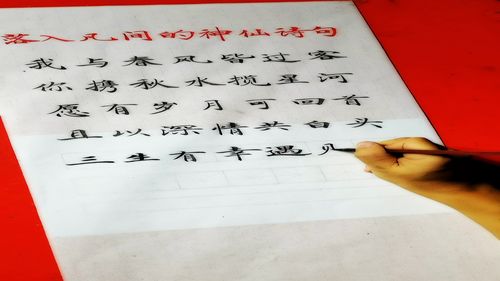 落入凡间的神仙诗句
我与春风皆过客
你携秋水揽星河
愿有岁月可回首
且以深情共白头
三生有幸遇见